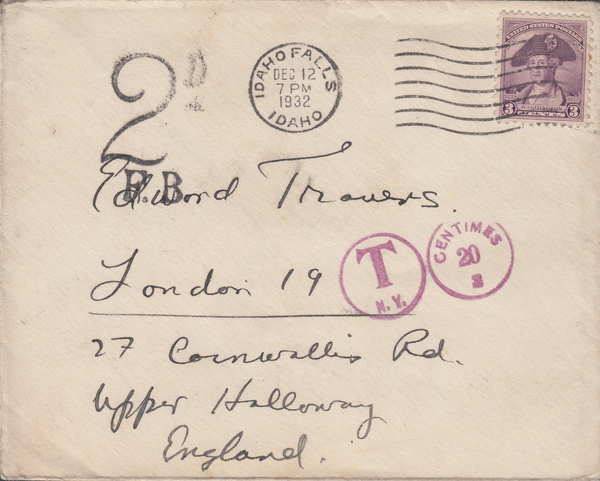 2D
F.B.
IDAHO FALLS
DEC 12
7 PM
1932
IDAHO
UNITED STATES POSTAGE
WASHINGTON
3 CENTS 3
Edward Travers.
London 19
27 Cornwallis Rd.
Upper Holloway
England.
T
N.Y.
CENTIMES
20